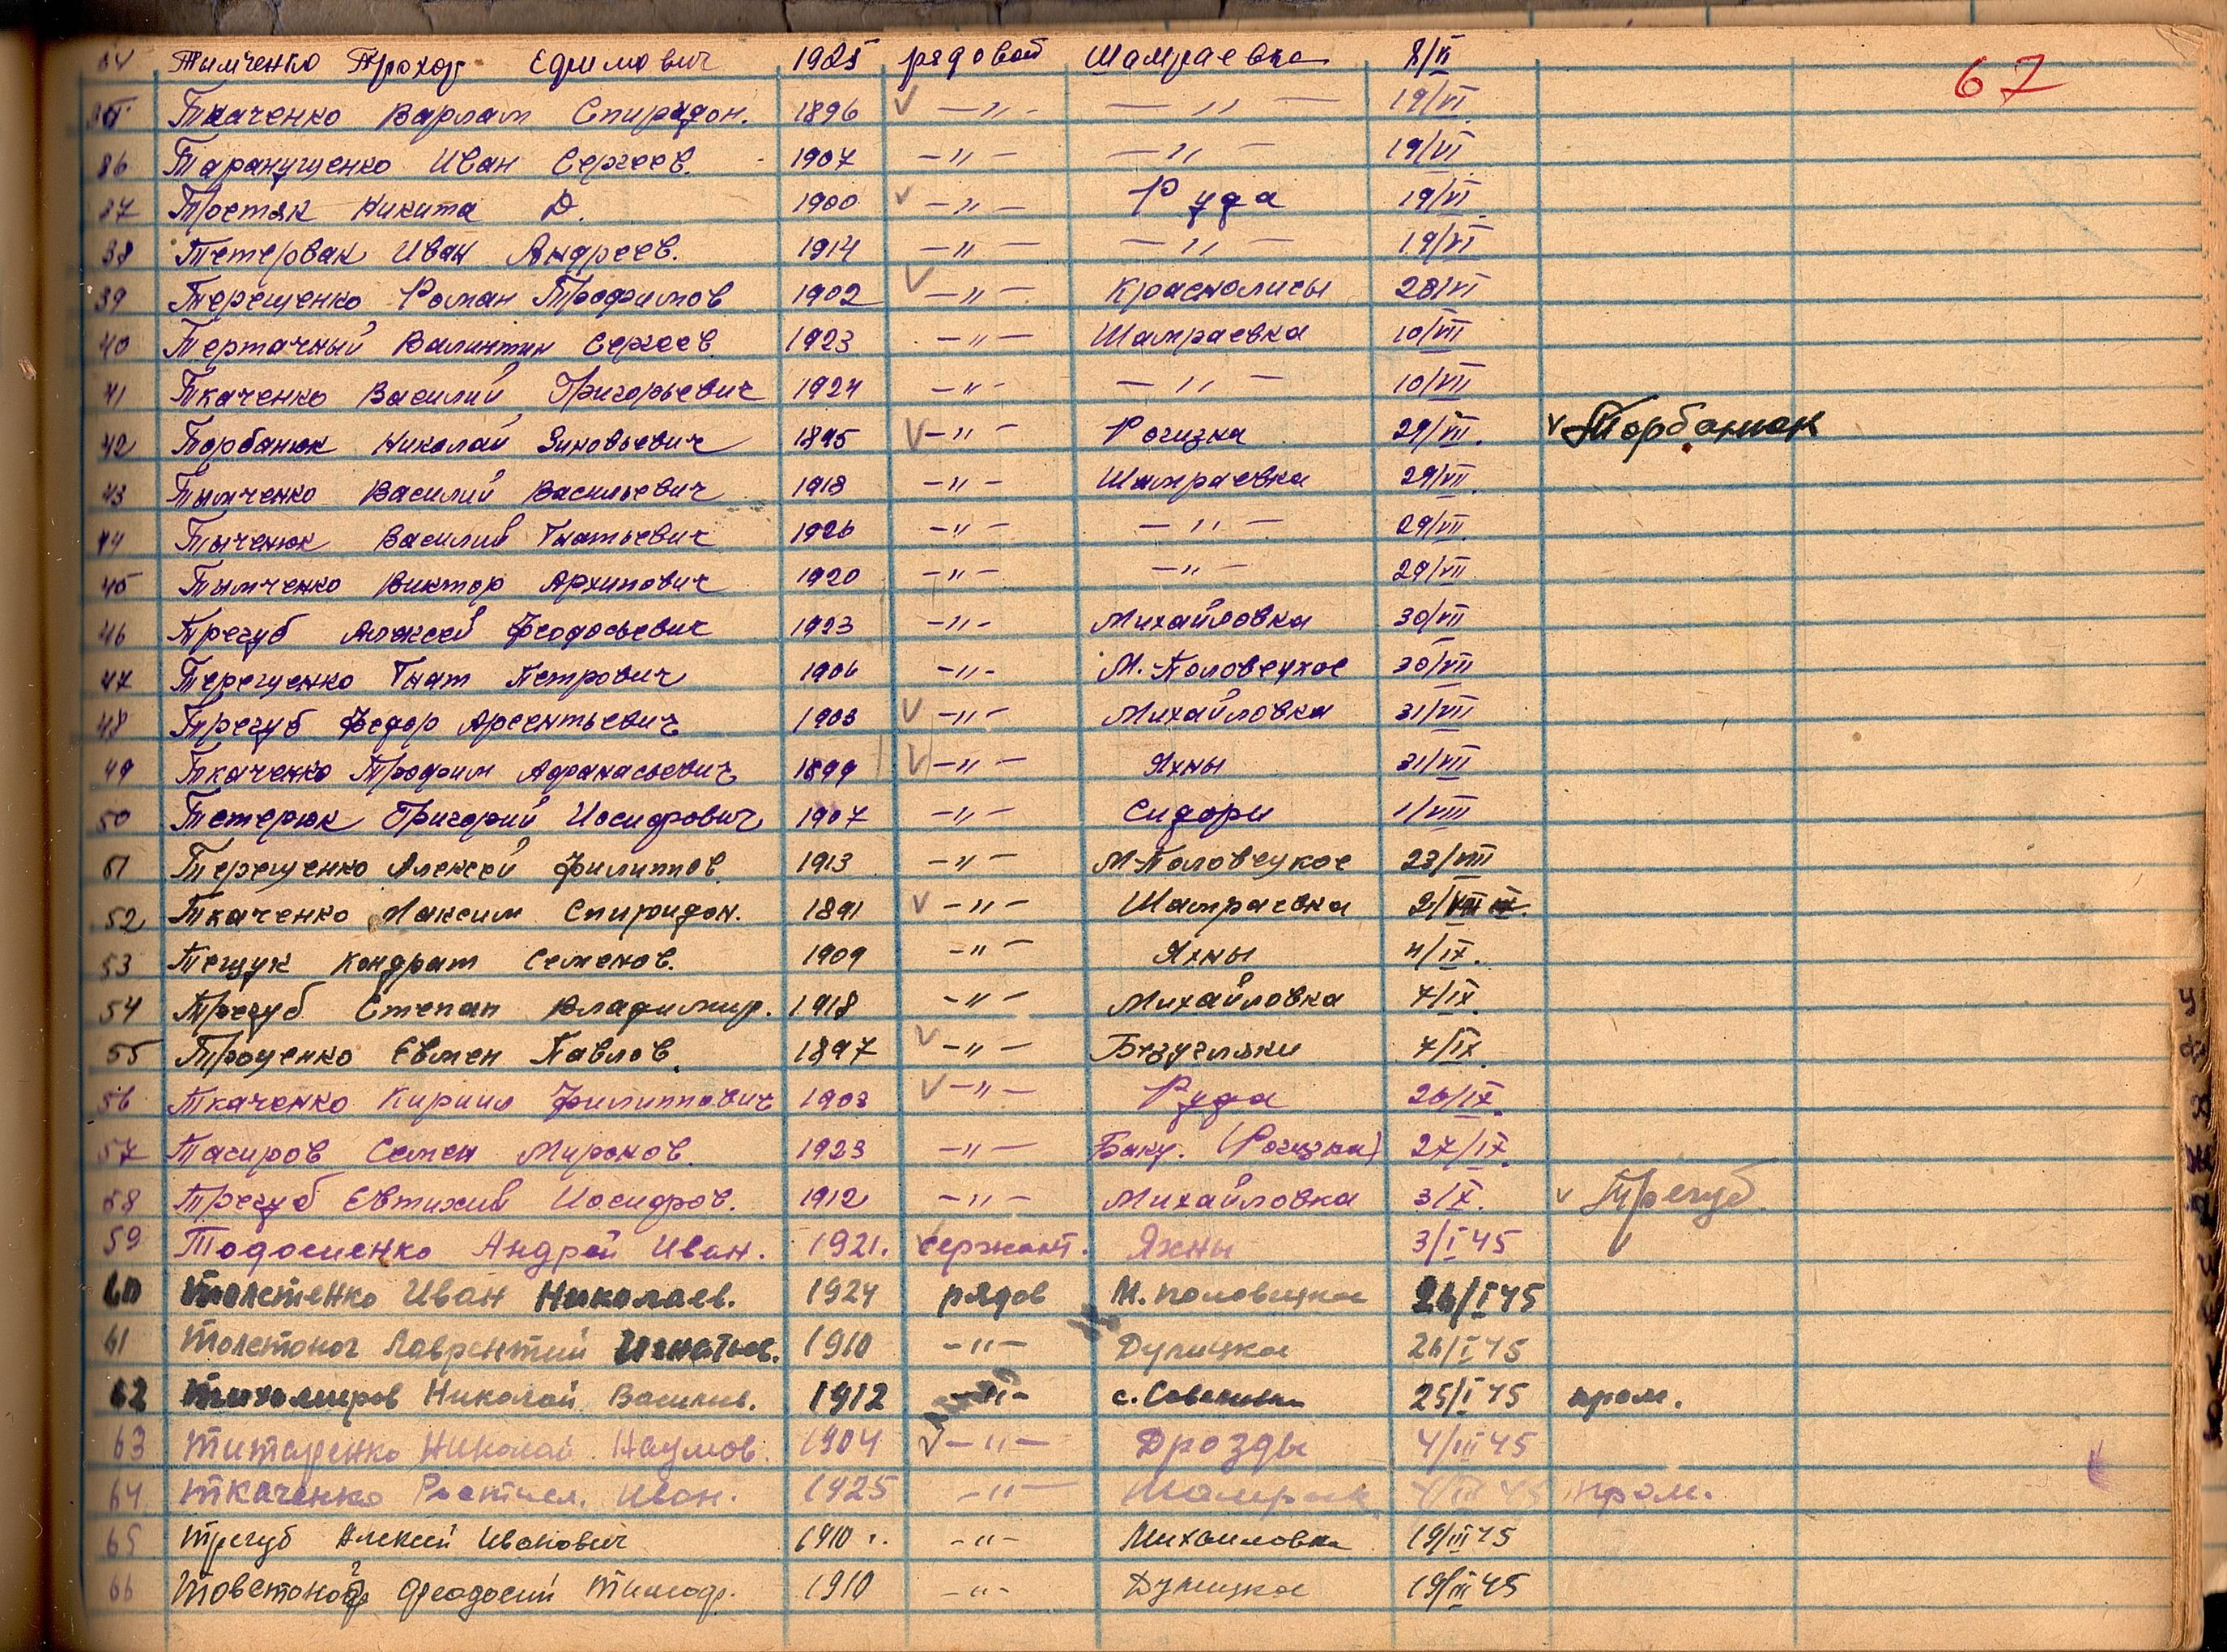 67
34 Тимченко Прохор Ефимович 1925 рядовой Шамраевка 8/VI
35 Ткаченко Варлам Спиридон. 1896 √ —"— —"— 19/VI
36 Таранущенко Иван Сергеев. 1907 —"— —"— 19/VI
37 Простяк Никита Д. 1900 √ —"— Руда 19/VI
38 Тетервак Иван Андреев. 1914 —"— —"— 19/VI
39 Терещенко Роман Трофимов 1902 √ —"— Красnолисы 28/VI
40 Тертачный Валинтин Сергеев. 1923 —"— Шамраевка 10/VII
41 Ткаченко Василий Григорьевич 1924 —"— —"— 10/VII
42 Торбанюк Николай Зиновьевич 1895 √ —"— Рогизна 29/VII. √ Торбанюк
43 Тымченко Василий Васильевич 1918 —"— Шамраевка 29/VII.
44 Тыченюк Василий Гнатьевич 1926 —"— —"— 29/VII.
45 Тымченко Виктор Архипович 1920 —"— —"— 29/VII
46 Трегуб Алексей Феодосьевич 1923 —"— Михайловка 30/VII
47 Терещенко Гнат Петрович 1906 —"— М. Половецкое 30/VII
48 Трегуб Федор Арсентьевич 1903 √ —"— Михайловка 31/VII
49 Ткаченко Трофим Афанасьевич 1899 √ —"— Яхны 31/VII
50 Тетерюк Григорий Иосифович 1907 —"— Сидори 1/VIII
51 Терещенко Алексей Филиппов. 1913 —"— М-Половецкое 23/VIII
52 Ткаченко Максим Спиридон. 1891 √ —"— Шамраевка 2/IX.
53 Тещук Кондрат Семенов. 1909 —"— Яхны 4/IX.
54 Трегуб Степан Владимир. 1918 —"— Михайловка 7/IX.
55 Троценко Евмен Павлов. 1897 √ —"— Безугляки 7/IX.
56 Ткаченко Кирилл Филиппович 1903 √ —"— Руда 26/IX.
57 Тасиров Семен Миронов. 1923 —"— Баку. (Рогизна) 27/IX.
58 Трегуб Евтихий Иосифов. 1912 —"— Михайловка 3/X. √ Трегуб
59 Тодосиенко Андрей Иван. 1921. сержант. Яхны 3/I 45
60 Толстенко Иван Николаев. 1924 рядов М. половецкое 26/I 45
61 Толстоног Лаврентий Игнатьев. 1910 —"— Дулицкое 26/I 45
62 Тихомиров Николай Василив. 1912 —"— с. 25/I 45 пром.
63 Титаренко Николай Наумов. 1904 √ —"— Дрозды 4/III 45
64 Ткаченко Ростисл. Иван. 1925 —"— Шамраев. 4/III 45 пром.
65 Трегуб Алексей Иванович 1910 г. —"— Михайловка 19/III 45
66 Товстоног Феодосий Тимоф. 1910 —"— Дулицкое 19/III 45